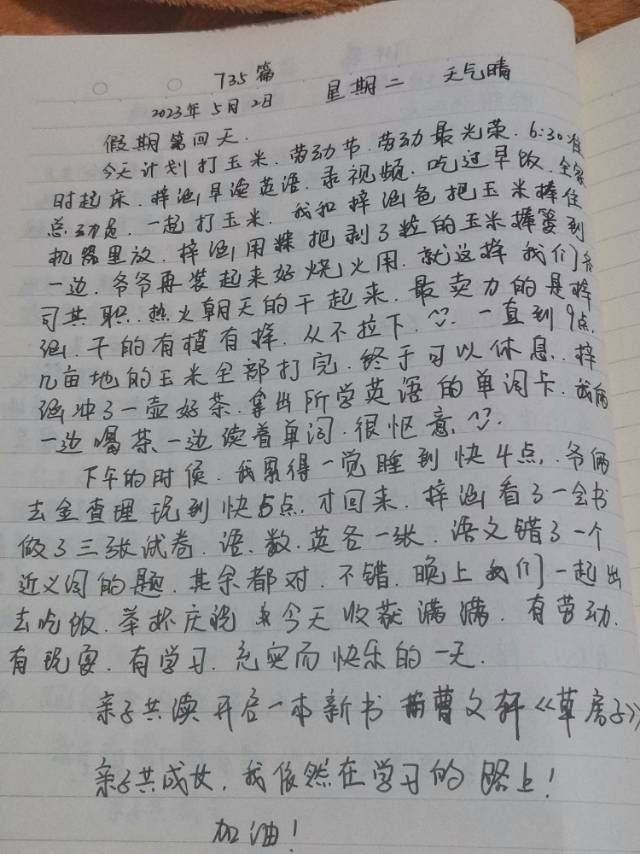 735篇
2023年5月2日 星期二 天气晴
假期第四天.
今天计划打玉米.劳动节.劳动最光荣.6:30准
时起床.梓涵早读英语.录视频.吃过早饭.全家
总动起.一起打玉米.我和梓涵爸把玉米棒住
机器里放.梓涵用 把剥了粒的玉米棒 到
一边.爷爷再装起来好烧火用.就这样我们各
司其职.热火朝天的干起来.最卖力的是梓
涵.干的有模有样.从不拉下.一直到9点.
几亩地的玉米全部打完.终于可以休息.梓
涵冲了一壶好茶.拿出所学英语的单词卡.我俩
一边喝茶、一边读着单词.很惬意.
下午的时候.我累得一觉睡到快4点.爷俩
去金查理玩到快5点.才回来.梓涵看了一会书
做了三张试卷.语.数.英各一张.语文错了一个
近义词的题.其余都对.不错.晚上我们一起出
去吃饭.举杯庆祝 今天收获满满.有劳动.
有玩耍.有学习.充实而快乐的一天.
亲子共读开启一本新书 曹文轩《草房子》
亲子共成长,我依然在学习的路上!
加油!